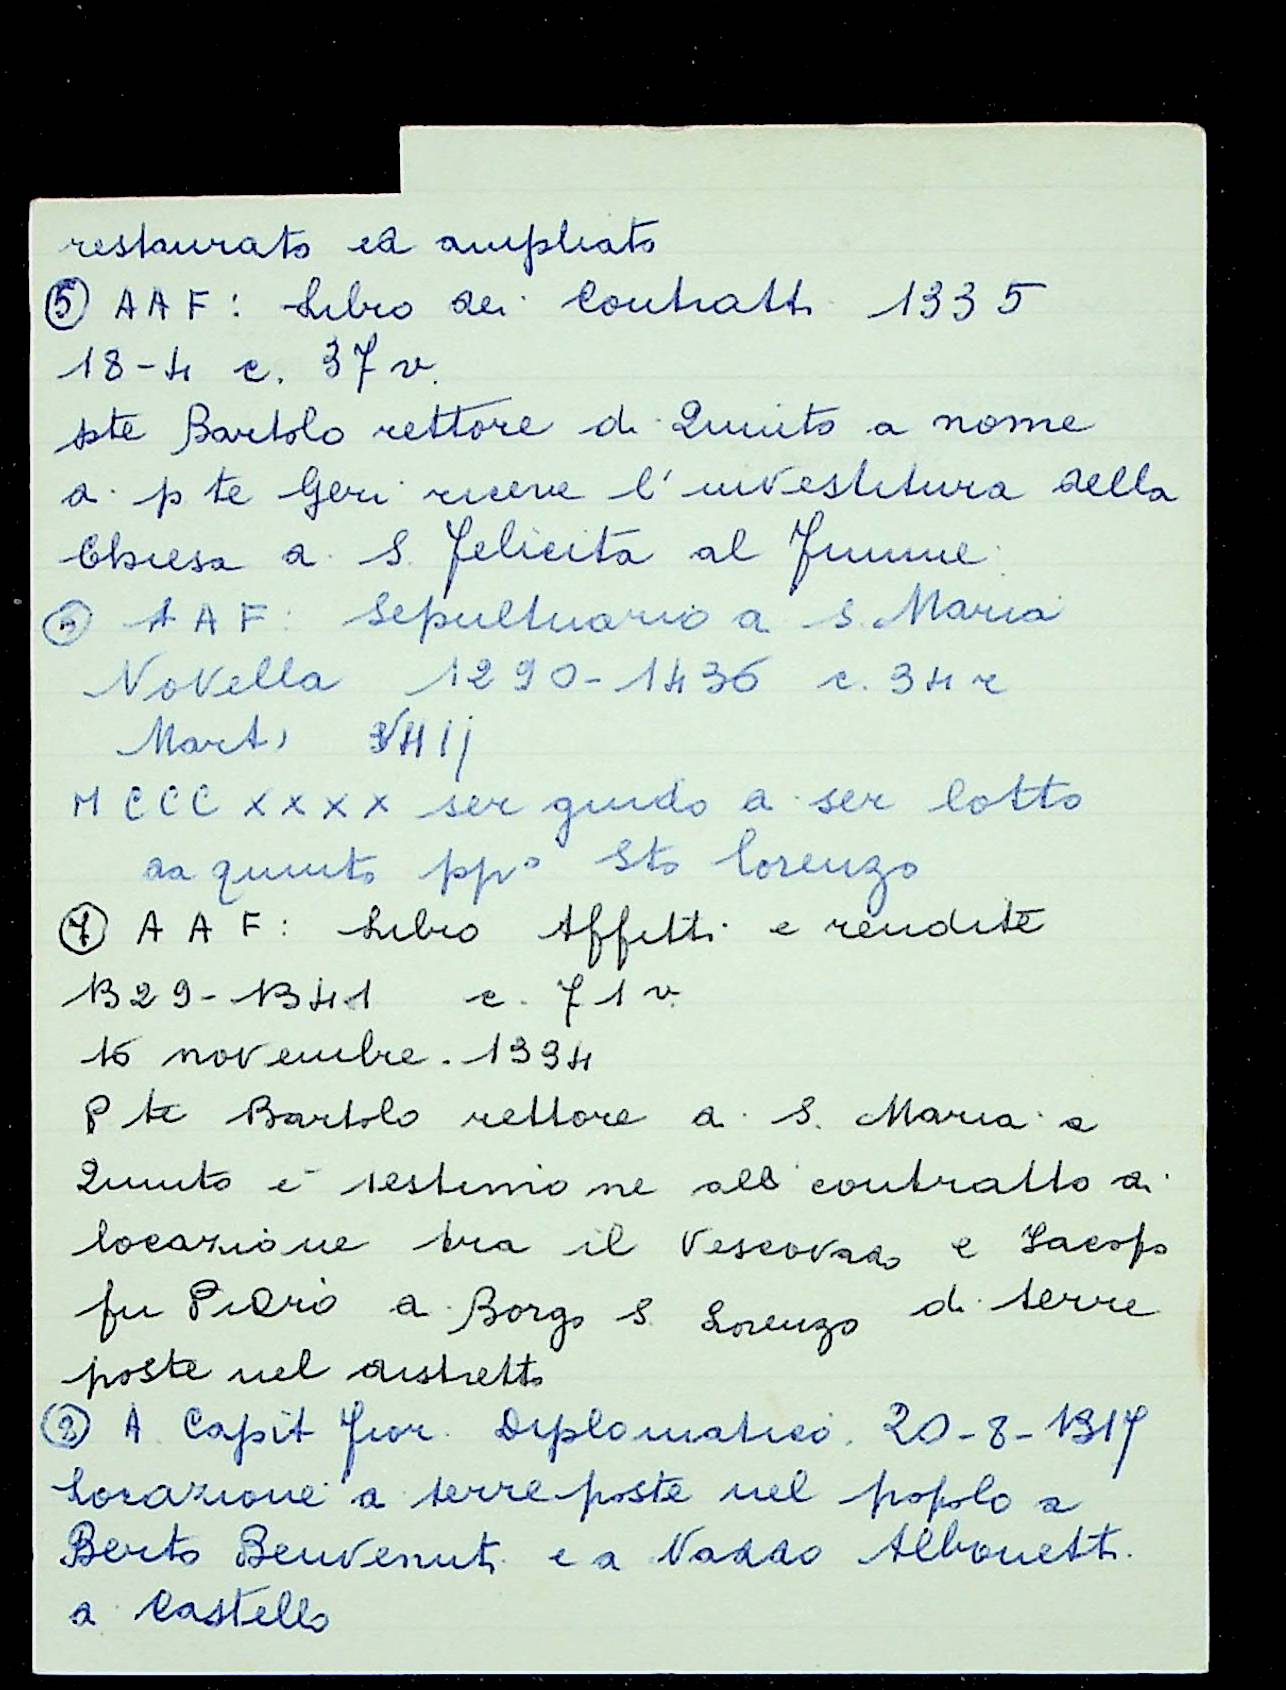 restaurato ed ampliato
⑤ AAF: Libro dei Contratti 1335
18-4 c. 37 v.
pte Bartolo rettore di Quinto a nome
di pte Geri riceve l'investitura della
Chiesa di S. Felicita al Fiume
AAF: Sepultuario di S. Maria
Novella 1290-1436 c. 34 r
Marti
MCCCXXXX ser guido di ser lotto
da quinto ppo Sto lorenzo
⑦ AAF: Libro Affitti e rendite
1329-1341 c. 71 v.
16 novembre. 1334
Pte Bartolo rettore di S. Maria a
Quinto è testimone all contratto di
locazione tra il Vescovado e Iacopo
fu Piero di Borgo S. Lorenzo di terre
poste nel distretto
A Capit Fior. Diplomatico. 20-8-1317
Locazione di terre poste nel popolo a
Berto Benvenuti e a Naddo Albonetti
a Castello